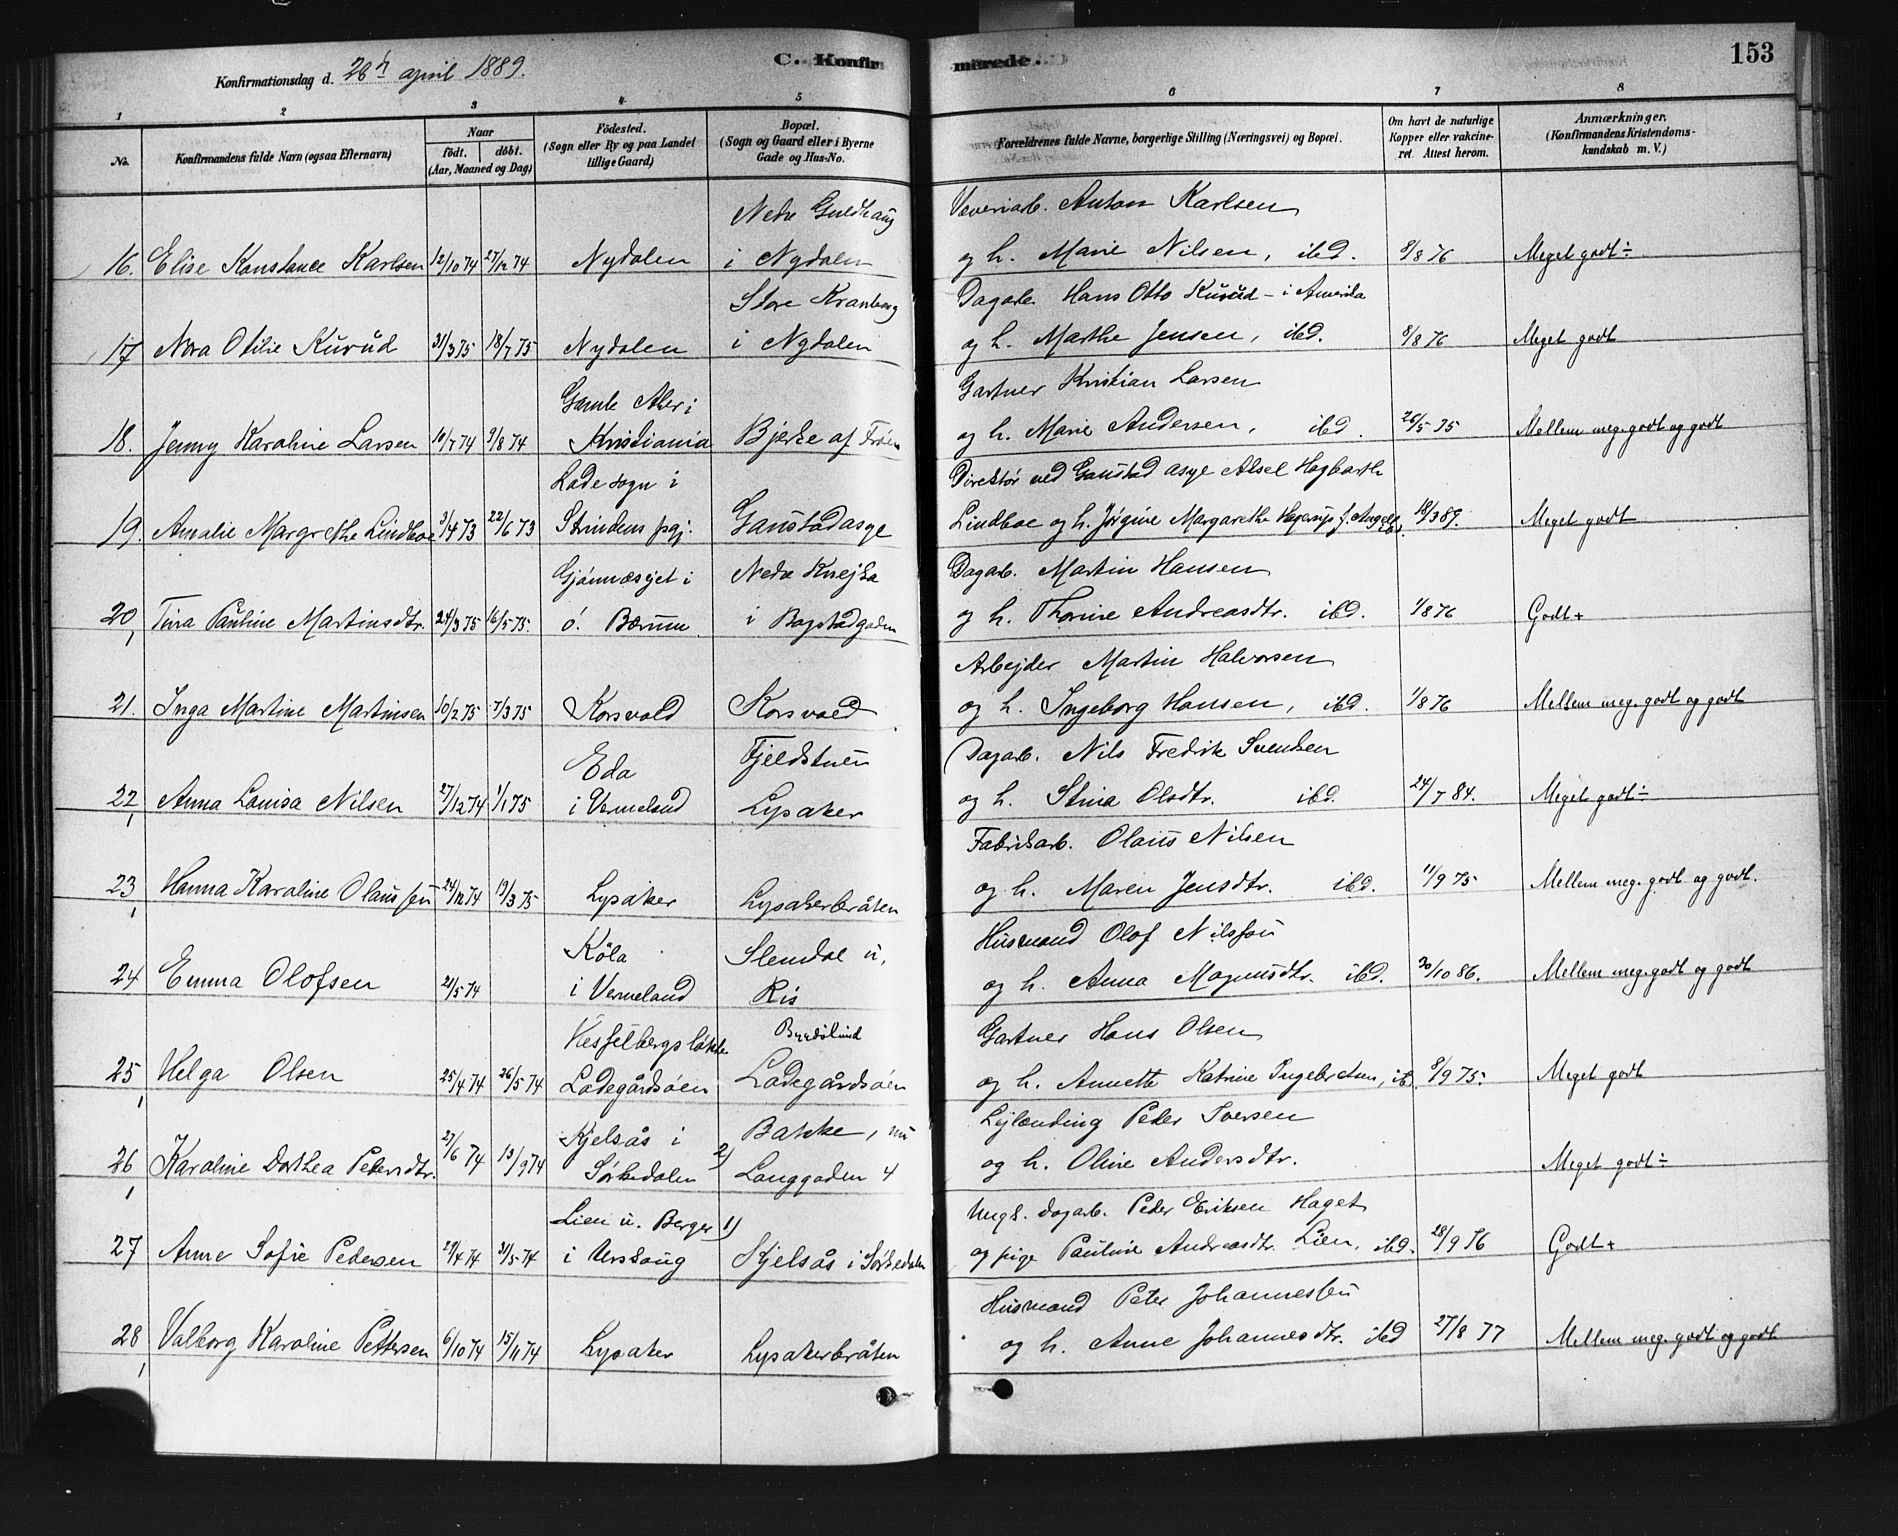 Konfirmationsdag d. 28de april 1889. C. Konfirmerede. 153
1 2 3 4 5 6 7 8
No. Konfirmandens fulde Navn (ogsaa Efternavn) Naar født. døbt. (Aar, Maaned og Dag) Fødested. (Sogn eller By og paa Landet tillige Gaard) Bopæl. (Sogn og Gaard eller i Byerne Gade og Hus-No. Forældrenes fulde Navne, borgerlige Stilling (Næringsvei) og Bopæl. Om havt de naturlige Kopper eller vakcineret. Attest herom. Anmærkninger. (Konfirmandens Kristendomskundskab m. V.)
Nedre Guldhaug Væveriarb. Anton Karlsen
16. Elise Konstance Karlsen 12/10 74 27/12 74 Nydalen i Nydalen og h. Marie Nilsen, ibd. 8/8 76 Meget godt ÷
Store Kranhaug Dagarb. Hans Otto Kurud - i Amerika
17 Nora Otilie Kurud 31/3 75 18/7 75 Nydalen i Nydalen og h. Marthe Jensen, ibd. 8/8 76 Meget godt
Gamle Aker i Gartner Kristian Larsen
18. Jenny Karoline Larsen 10/7 74 9/8 74 Kristiania Bjerke af Frøen og h. Marie Andersen, ibd. 26/5 75 Mellem meg. godt og godt
Lade sogn i Direktør ved Gaustad asyl Axel Hagbarth
19. Amalie Margrethe Lindboe 3/4 73 22/6 73 Strindens pgj. Gaustadasyl Lindboe og h. Jørgine Margarethe Hagerup f. Angell ibd. 18/3 89. Meget godt
Gjønnæsejet i Nedre Knejka Dagarb. Martin Hansen
20, Tina Pauline Martinsdtr. 24/3 75 16/5 75. ø. Bærum i Bogstadgaden og h. Thorine Andreasdtr. ibd. 1/8 76 Godt +
Arbejder Martin Halvorsen
21. Inga Martine Martinsen 10/2 75 7/3 75 Korsvold Korsvold og h. Ingeborg Hansen, ibd. 1/8 76 Mellem meg. godt og godt
Eda Fjeldstuen Dagarb. Nils Fredrik Svendsen
22, Anna Lovisa Nilsen 27/12 74 1/1 75 i Vermeland Lysaker og h. Stina Olsdtr. ibd. 24/7 84. Meget godt ÷
Fabrikarb. Olaus Nilsen
23, Hanna Karoline Olaussen 24/12 74 19/3 75 Lysaker Lysakerbråten og h. Maren Jensdtr. ibd. 11/9 75 Mellem meg. godt og godt.
Køla Slemdal u. Husmand Olof Nilsson
24, Emma Olofsen 21/5 74 i Vermeland Ris og h. Anna Magnusdtr. ibd. 30/10 86. Mellem meg. godt og godt
Hesselbergsløkke Bygdølund Gartner Hans Olsen
25, Helga Olsen 25/4 74 26/5 74 Ladegårdsøen Ladegårdsøen og h. Annette Katrine Ingebretsen, ibd. 8/9 75. Meget godt
Kjelsås i Bakke, nu Lejlænding Peder Iversen
26, Karoline Dorthea Pedersdtr. 27/6 74 13/9 74 Sørkedalen 2) Langgaden 4 og h. Oline Andersdtr. Meget godt ÷
Lien u. Berger 1) Ungk. dagarb. Peder Eriksen Haget
27, Anne Sofie Pedersen 29/4 74 31/5 74 i Urskoug Kjelsås i Sørkedalen og pige Pauline Andreasdtr. Lien, ibd. 28/9 76 Godt +
Husmand Peter Johannessen
28, Valborg Karoline Pettersen 6/10 74 15/11 74 Lysaker Lysakerbråten og h. Anne Johannesdtr. ibd 27/8 77 Mellem meg. godt og godt